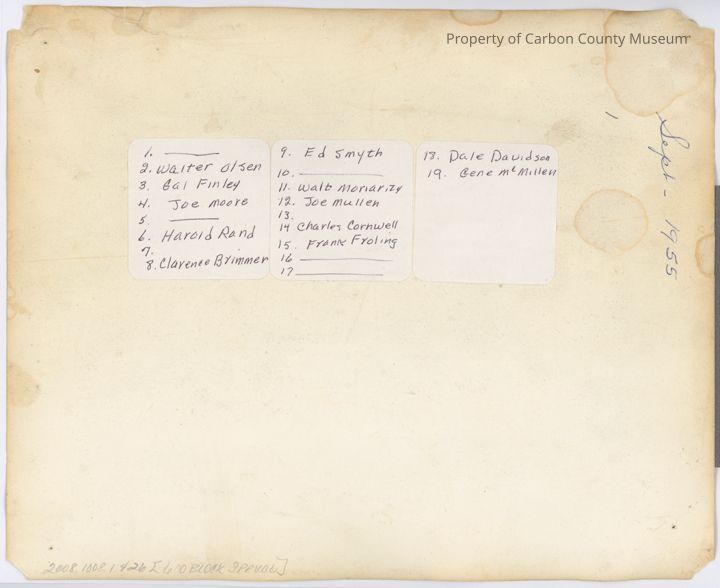 Property of Carbon County Museum
1. ____
2. Walter Olsen
3. Cal Finley
4. Joe Moore
5. ____
6. Harold Rand
7.
8. Clarence Brimmer
9. Ed Smyth
10. ____
11. Walt Moriarity
12. Joe Mullen
13.
14 Charles Cornwell
15. Frank Froling
16 ____
17 ____
18. Dale Davidson
19. Gene McMillen
1
Sept - 1955
2008.1002.1426